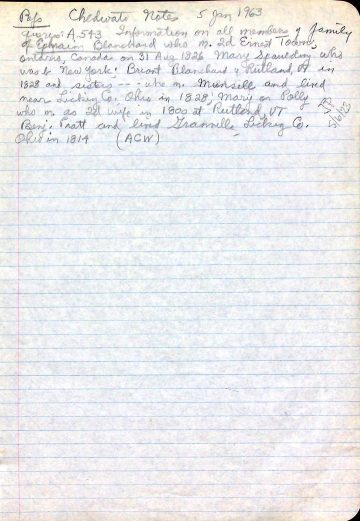 Chedwato Notes 5 Jan 1963
A.543 Information on all members of family
of Ephraim Blanchard who m. 2d Ernest Town,
Ontario, Canada on 31 Aug 1826 Mary Spaulding who
was b. New York: Briant Blanchard of Rutland, VT in
1828 and sisters --- who m. Munsell and lived
near Licking Co. Ohio in 1828, Mary or Polly
who m as 2d wife in 1800 at Rutland VT
Benj. Pratt and lived Granville Licking Co.
Ohio in 1814 (ACW)